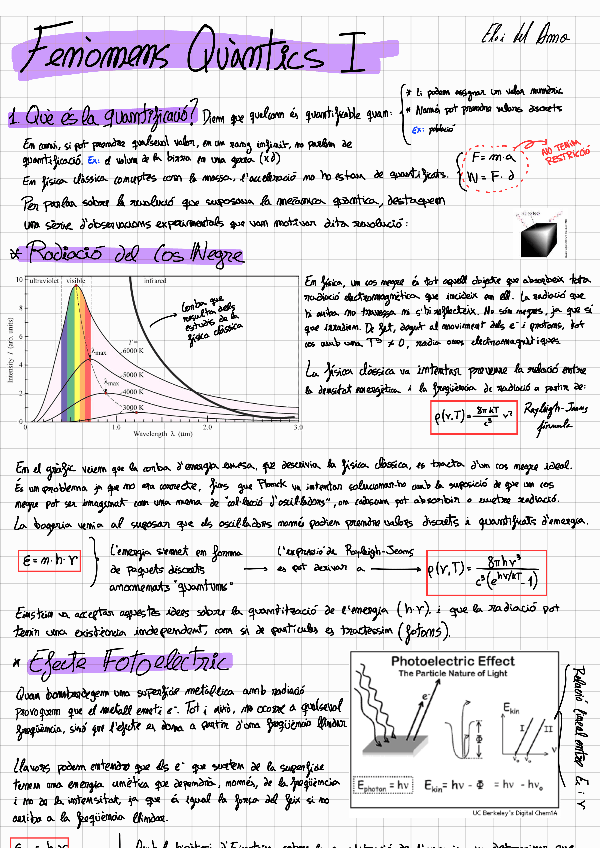 Fenòmens Quàntics I
Eli del Amo
1. Què és la quantificació? Diem que quelcom és quantificable quan:
* Li podem assignar un valor numèric
* Només pot prendre valors discrets
Ex: població
En canvi, si pot prendre qualsevol valor, en un rang infinit, no parlem de
quantificació. Ex: el volum de la birra en una gerra (xd)
En física clàssica conceptes com la massa, l'acceleració no ho estan de quantificats.
F = m·a
W = F·d
NO TENIM
RESTRICCIÓ
Per parlar sobre la revolució que suposava la mecànica quàntica, destaquem
una sèrie d'observacions experimentals que van motivar dita revolució:
* Radiació del Cos Negre
ultraviolet visible infrared
Intensity I (arb. units)
10
8
6
4
2
0
0 1.0 2.0 3.0
Wavelength λ (μm)
T =
6000 K
5000 K
4000 K
3000 K
λmax
λmax
Corba que
resulta dels
estudis de la
física clàssica
En física, un cos negre és tot aquell objecte que absorbeix tota
radiació electromagnètica que incideix en ell. La radiació que
hi arriba no travessa ni s'hi reflecteix. No són negres, ja que sí
que irradien. De fet, degut al moviment dels e⁻ i protons, tot
cos amb una Tª ≠ 0, radia ones electromagnètiques.
La física clàssica va intentar preveure la relació entre
la densitat energètica i la freqüència de radiació a partir de:
ρ(ν,T) = 8πkT/c³ ν²
Rayleigh-Jeans
fórmula
En el gràfic veiem que la corba d'energia emesa, que descrivia la física clàssica, es tracta d'un cos negre ideal.
És un problema ja que no era correcte, fins que Planck va intentar solucionar-ho amb la suposició de que un cos
negre pot ser imaginat com una mena de "col·lecció d'oscil·ladors", on cadascun pot absorbir o emetre radiació.
La bogeria venia al suposar que els oscil·ladors només podien prendre valors discrets i quantificats d'energia.
E = n·h·ν
L'energia s'emet en forma
de paquets discrets
anomenats "quantums"
L'expressió de Rayleigh-Jeans
es pot derivar a
ρ(ν,T) = 8πhν³/c³(e^(hν/kT) - 1)
Einstein va acceptar aquestes idees sobre la quantització de l'energia (h·ν), i que la radiació pot
tenir una existència independent, com si de partícules es tractessin (fotons).
* Efecte Fotoelèctric
Quan bombardegem una superfície metàl·lica amb radiació
provoquem que el metall emeti e⁻. Tot i això, no ocorre a qualsevol
freqüència, sinó que l'efecte es dona a partir d'una freqüència llindar
Llavors podem entendre que els e⁻ que surten de la superfície
tenen una energia cinètica que dependrà, només, de la freqüència
i no de la intensitat, ja que és igual la força del feix si no
arriba a la freqüència llindar.
Photoelectric Effect
The Particle Nature of Light
e⁻
Φ
Ekin
I II
ν
Ephoton = hν
Ekin = hν - Φ = hν - hν₀
UC Berkeley's Digital Chem1A
Relació lineal entre Ec i ν